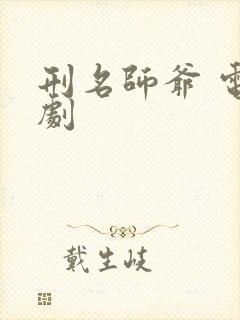 刑名師爺 電
劇
戴生岐